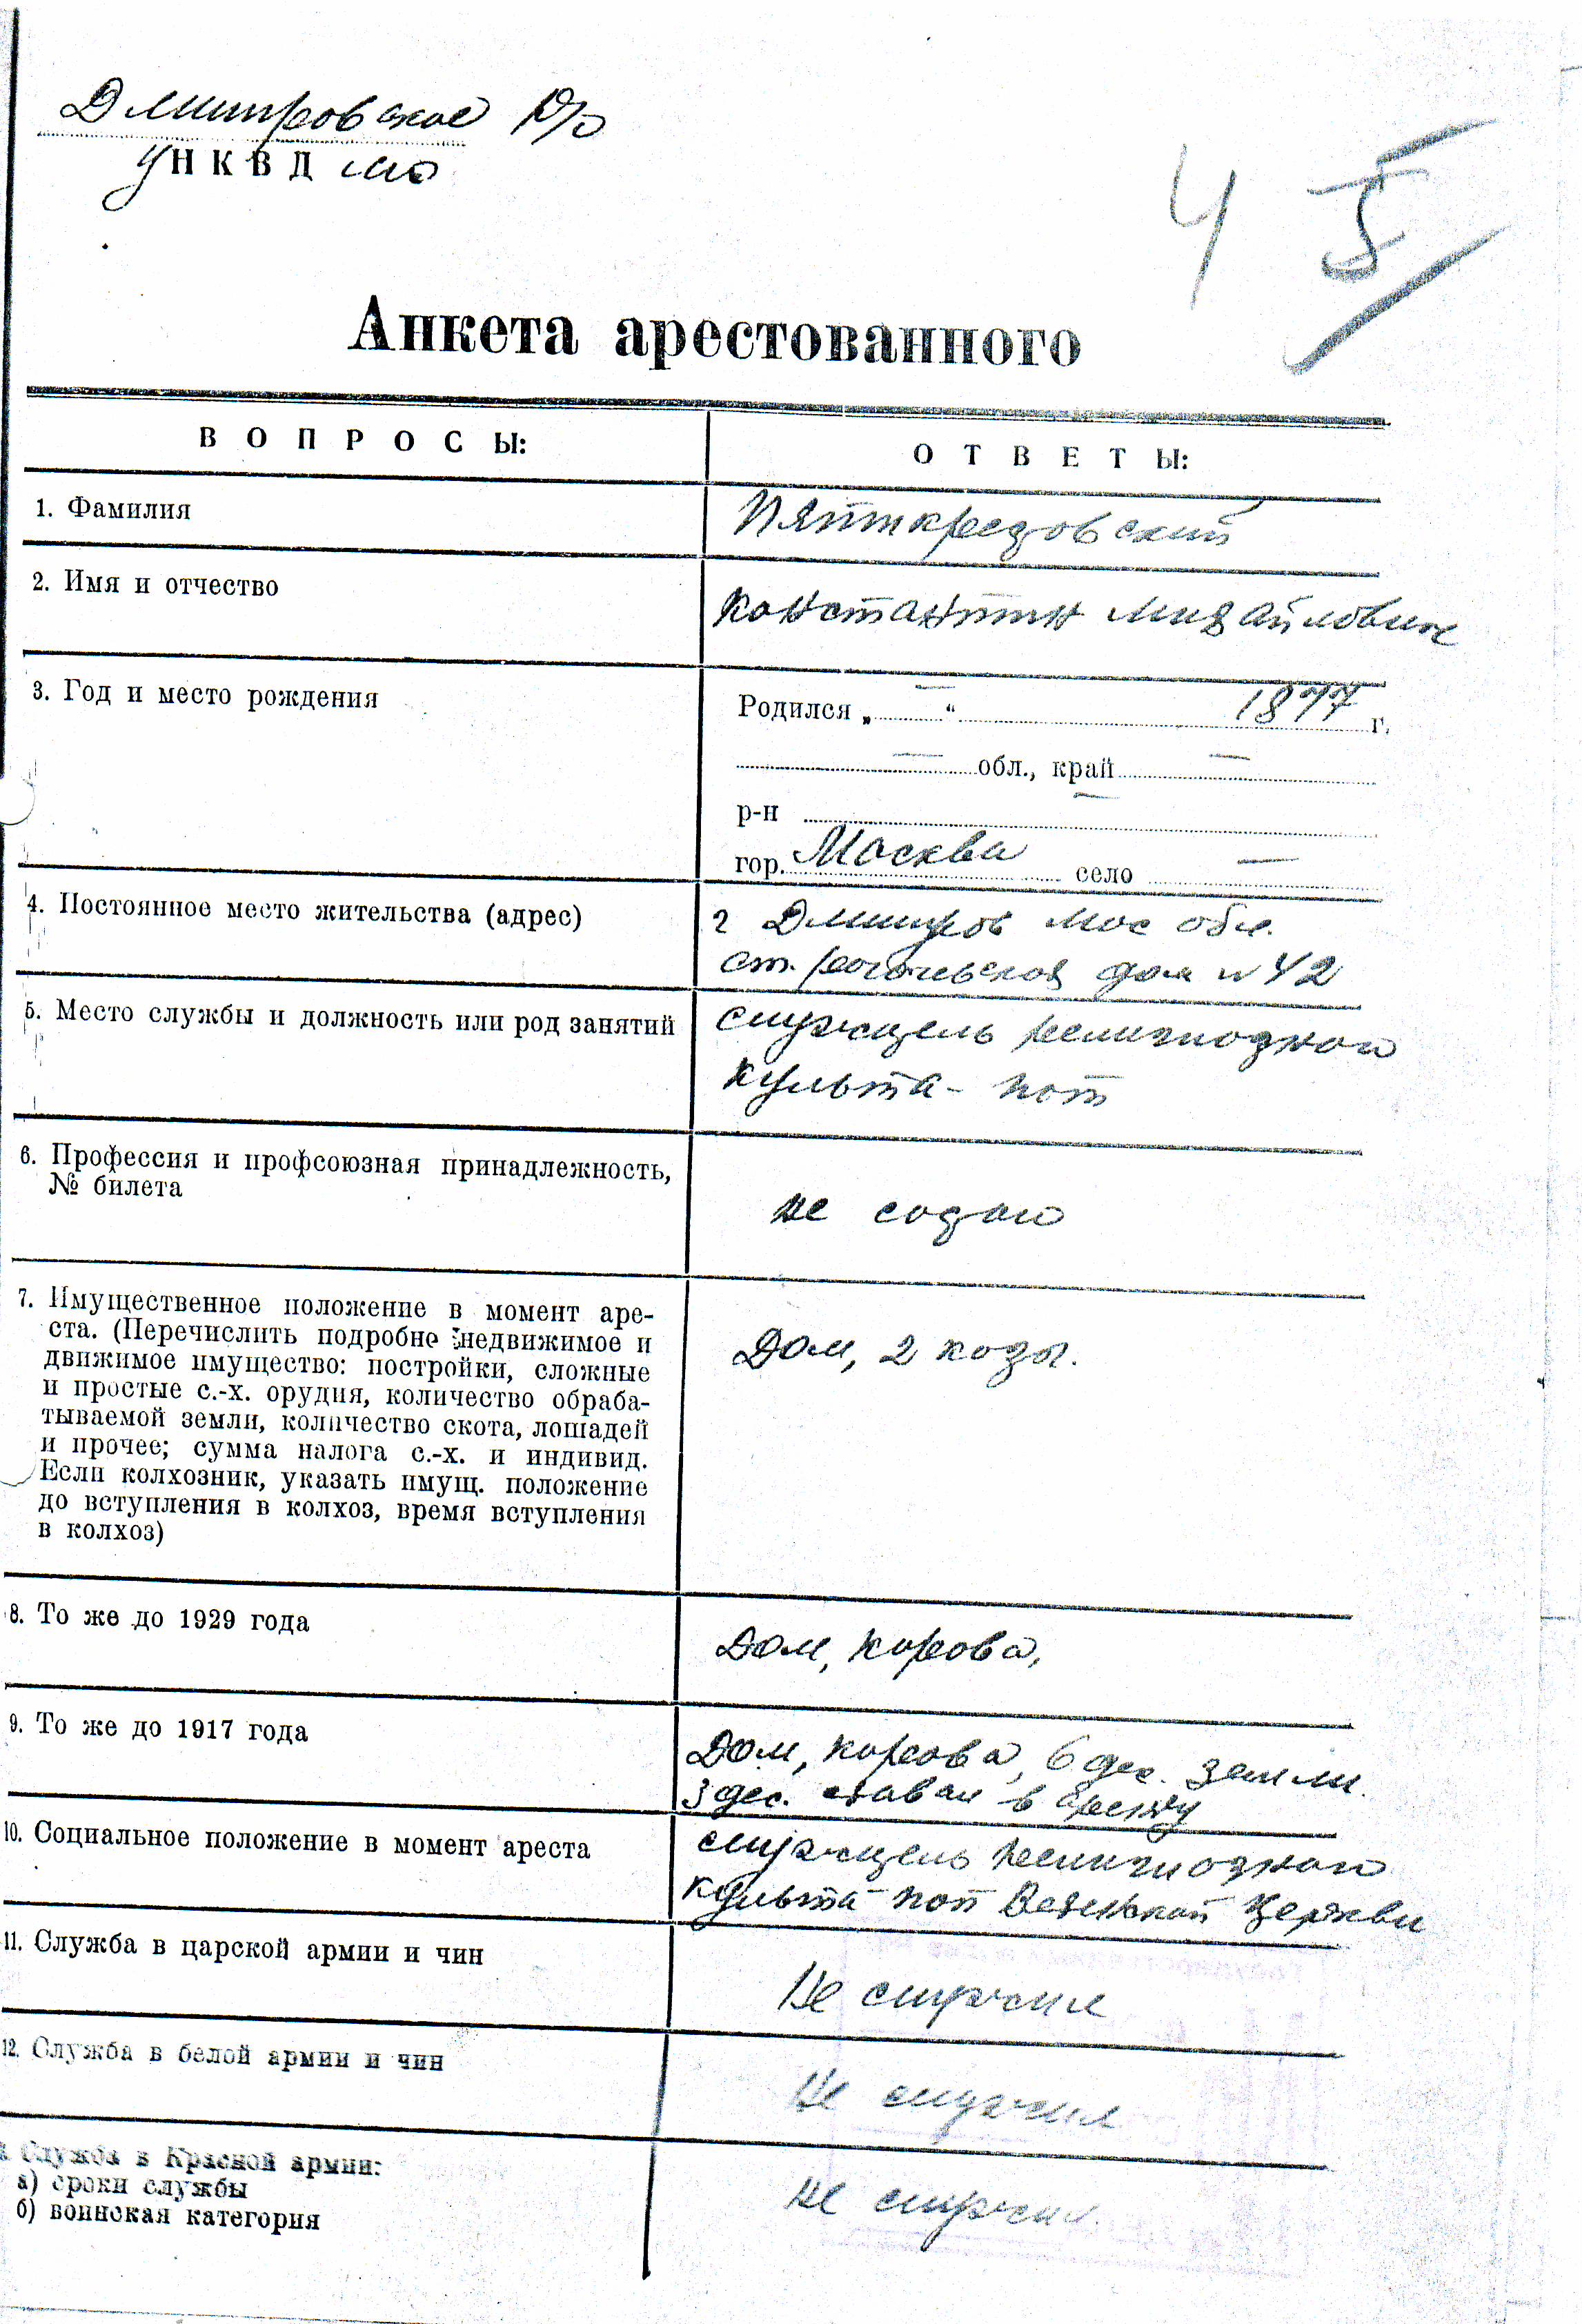 Дмитровское р/о
УНКВД МО
4 5
Анкета арестованного
ВОПРОСЫ:
ОТВЕТЫ:
1. Фамилия
Пятикрестовский
2. Имя и отчество
Константин Михайлович
3. Год и место рождения
Родился „ — “ 1877 г.
— обл., край —
р-н —
гор. Москва село —
4. Постоянное место жительства (адрес)
г Дмитров Мос обл.
ст. рогачевская дом №42
5. Место службы и должность или род занятий
служитель религиозного
культа - поп
6. Профессия и профсоюзная принадлежность,
№ билета
не состою
7. Имущественное положение в момент аре-
ста. (Перечислить подробно недвижимое и
движимое имущество: постройки, сложные
и простые с.-х. орудия, количество обраба-
тываемой земли, количество скота, лошадей
и прочее; сумма налога с.-х. и индивид.
Если колхозник, указать имущ. положение
до вступления в колхоз, время вступления
в колхоз)
Дом, 2 козы.
8. То же до 1929 года
Дом, корова,
9. То же до 1917 года
Дом, корова, 6 дес. земли.
3 дес. сдавал в аренду
10. Социальное положение в момент ареста
служитель религиозного
культа - поп церкви
11. Служба в царской армии и чин
Не служил
12. Служба в белой армии и чин
Не служил
Служба в Красной армии:
а) сроки службы
б) воинская категория
не служил.